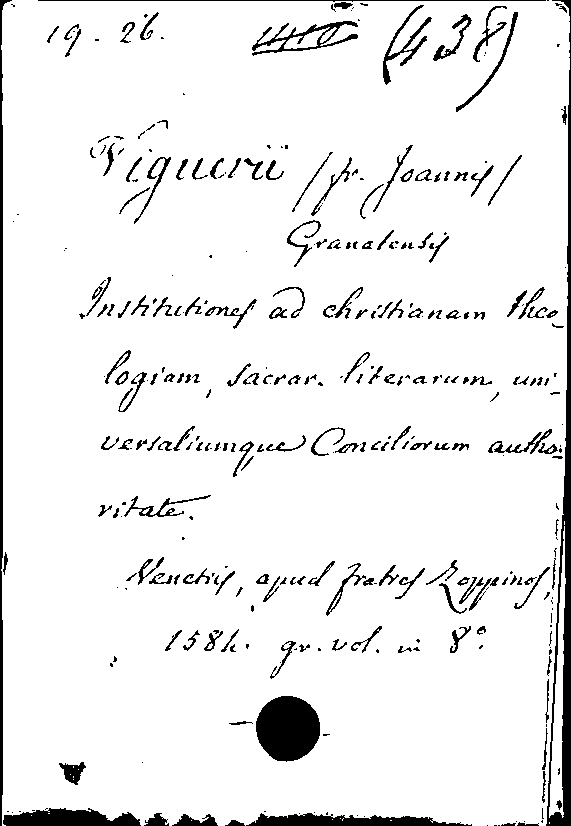 19. 26. (438)
Viguerii /fr. Joannis/
Granatensis
Institutiones ad christianam theo-
logiam, sacrar. literarum, uni-
versaliumque Conciliorum autho-
ritate.
Venetiis, apud fratres Zoppinos,
1584. gr. vol. in 8°.